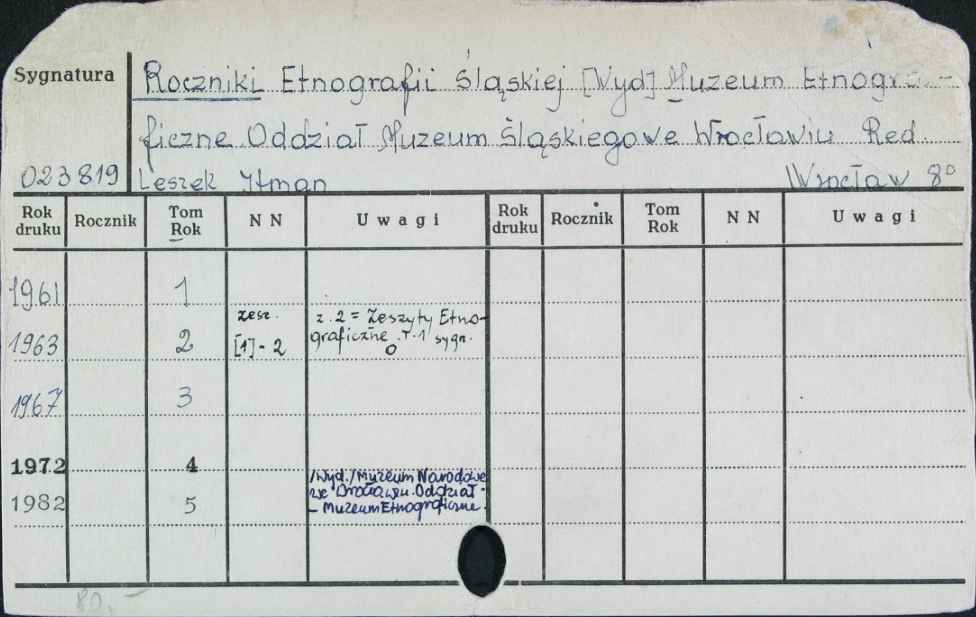 Sygnatura
Roczniki Etnografii Śląskiej [Wyd] Muzeum Etnogra-
ficzne Oddział Muzeum Śląskiego we Wrocławiu Red.
023819 Leszek Itman Wrocław 8°
Rok druku Rocznik Tom Rok NN Uwagi Rok druku Rocznik Tom Rok NN Uwagi
1961 1
zesz. z. 2 = Zeszyty Etno-
1963 2 [1]-2 graficzne . T. 1 sygn.
O
1967 3
1972 4
/Wyd./ Muzeum Narodowe
1982 5 we Wrocławiu. Oddział -
- Muzeum Etnograficzne.
80.-